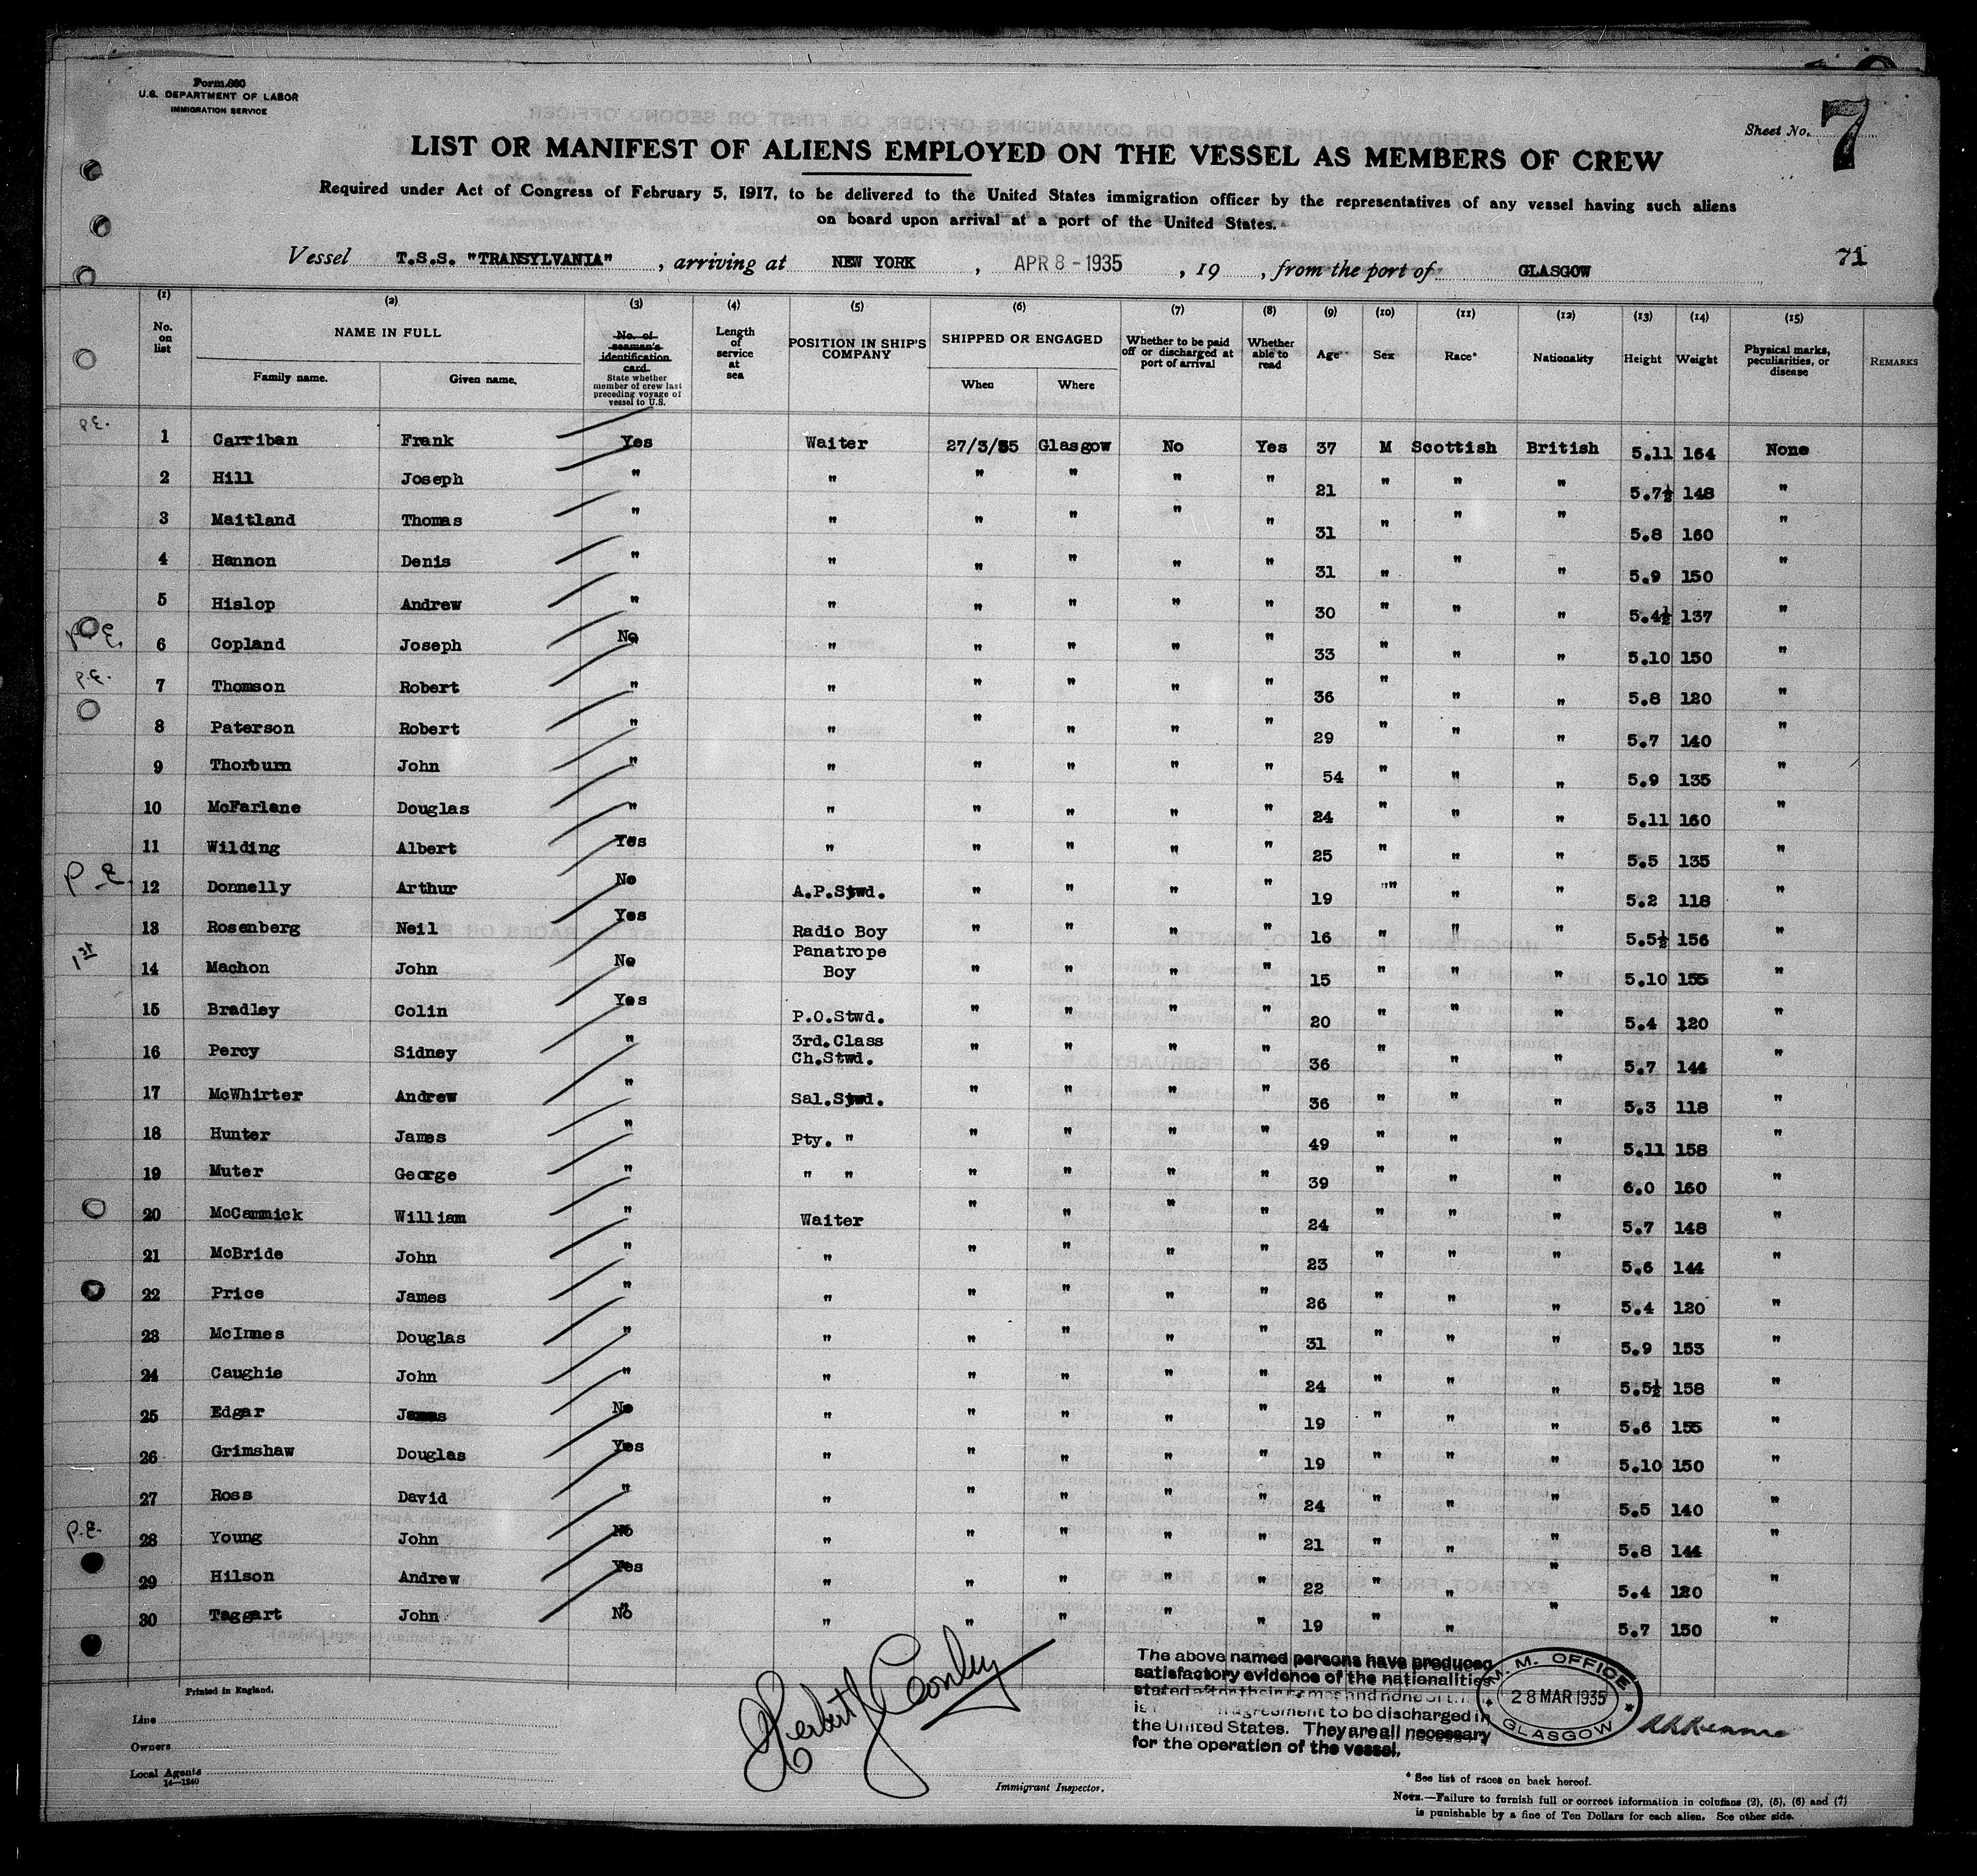 Form 680
U.S. DEPARTMENT OF LABOR
IMMIGRATION SERVICE
Sheet No. 7
LIST OR MANIFEST OF ALIENS EMPLOYED ON THE VESSEL AS MEMBERS OF CREW
Required under Act of Congress of February 5, 1917, to be delivered to the United States immigration officer by the representatives of any vessel having such aliens
on board upon arrival at a port of the United States.
Vessel T.S.S. "TRANSYLVANIA", arriving at NEW YORK, APR 8 - 1935, 19 , from the port of GLASGOW
71
(1) (2) (3) (4) (5) (6) (7) (8) (9) (10) (11) (12) (13) (14) (15)
No. on list NAME IN FULL Family name. Given name. No. of seaman's identification card. State whether member of crew last preceding voyage of vessel to U.S. Length of service at sea POSITION IN SHIP'S COMPANY SHIPPED OR ENGAGED When Where Whether to be paid off or discharged at port of arrival Whether able to read Age Sex Race* Nationality Height Weight Physical marks, peculiarities, or disease REMARKS
P.E. 1 Carriban Frank Yes Waiter 27/3/35 Glasgow No Yes 37 M Scottish British 5.11 164 None
2 Hill Joseph " " " " " " 21 " " " 5.7½ 148 "
3 Maitland Thomas " " " " " " 31 " " " 5.8 160 "
4 Hannon Denis " " " " " " 31 " " " 5.9 150 "
5 Hislop Andrew " " " " " " 30 " " " 5.4½ 137 "
P.E. 6 Copland Joseph No " " " " " 33 " " " 5.10 150 "
P.E. 7 Thomson Robert " " " " " " 36 " " " 5.8 120 "
8 Paterson Robert " " " " " " 29 " " " 5.7 140 "
9 Thorburn John " " " " " " 54 " " " 5.9 135 "
10 McFarlane Douglas " " " " " " 24 " " " 5.11 160 "
11 Wilding Albert Yes " " " " " 25 " " " 5.5 135 "
P.E. 12 Donnelly Arthur No A.P.Stwd. " " " " 19 " " " 5.2 118 "
13 Rosenberg Neil Yes Radio Boy " " " " 16 " " " 5.5½ 156 "
1st 14 Machon John No Panatrope Boy " " " " 15 " " " 5.10 155 "
15 Bradley Colin Yes P.O.Stwd. " " " " 20 " " " 5.4 120 "
16 Percy Sidney " 3rd.Class Ch.Stwd. " " " " 36 " " " 5.7 144 "
17 McWhirter Andrew " Sal.Stwd. " " " " 36 " " " 5.3 118 "
18 Hunter James " Pty. " " " " " 49 " " " 5.11 158 "
19 Muter George " " " " " " " 39 " " " 6.0 160 "
20 McCammick William " Waiter " " " " 24 " " " 5.7 148 "
21 McBride John " " " " " " 23 " " " 5.6 144 "
22 Price James " " " " " " 26 " " " 5.4 120 "
23 McInnes Douglas " " " " " " 31 " " " 5.9 153 "
24 Caughie John " " " " " " 24 " " " 5.5½ 158 "
25 Edgar James No " " " " " 19 " " " 5.6 155 "
26 Grimshaw Douglas Yes " " " " " 19 " " " 5.10 150 "
27 Ross David " " " " " " 24 " " " 5.5 140 "
P.E. 28 Young John No " " " " " 21 " " " 5.8 144 "
29 Hilson Andrew Yes " " " " " 22 " " " 5.4 120 "
30 Taggart John No " " " " " 19 " " " 5.7 150 "
Printed in England.
Line
Owners
Local Agents
14—1240
Immigrant Inspector.
The above named persons have produced
satisfactory evidence of the nationalities
stated after their names and none of
is agreement to be discharged in
the United States. They are all necessary
for the operation of the vessel.
M.M. OFFICE
28 MAR 1935
GLASGOW
* See list of races on back hereof.
NOTE.—Failure to furnish full or correct information in columns (2), (5), (6) and (7)
is punishable by a fine of Ten Dollars for each alien. See other side.